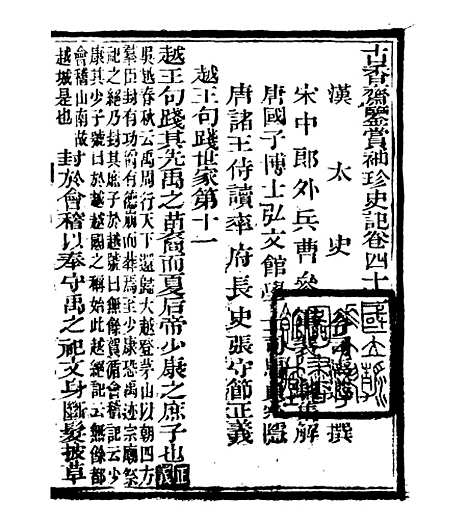 古香齋鑒賞袖珍史記卷四十
漢太史撰
宋中郎外兵曹參集解
唐國子博士弘文館學士司馬貞索隱
唐諸王侍讀率府長史張守節正義
越王句踐世家第十一
越王句踐其先禹之苗裔而夏后帝少康之庶子也正義
吳越春秋云禹周行天下還歸大越登茅山以朝四方
羣臣封有功爵有德崩而葬焉至少康恐禹迹宗廟祭
祀之絕乃封其庶子於越號曰無餘賀循會稽記云少
康其少子號曰於越越國之稱始此越絕記云無餘都
會稽山南故
越城是也
封於會稽以奉守禹之祀文身斷髮披草